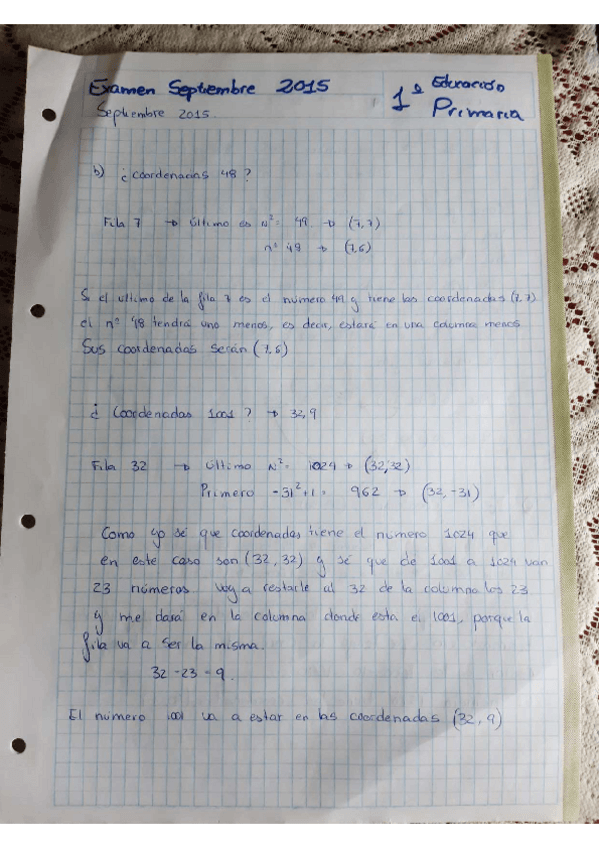 Examen Septiembre 2015
1º Educación Primaria
Septiembre 2015.
b) ¿Coordenadas 48?
Fila 7 → Último es N²= 49. → (7,7)
nº 48 → (7,6)
Si el ultimo de la fila 7 es el número 49 y tiene las coordenadas (7,7)
el nº 48 tendrá uno menos, es decir, estará en una columna menos
Sus coordenadas serán (7,6)
¿ Coordenadas 1001 ? → 32,9
Fila 32 → Último N²= 1024 → (32,32)
Primero -31²+1= 962 → (32,-31)
Como yo sé que coordenadas tiene el número 1024 que
en este caso son (32,32) y sé que de 1001 a 1024 van
23 números voy a restarle al 32 de la columna los 23
y me dará en la columna donde esta el 1001, porque la
fila va a ser la misma.
32 - 23 = 9.
El número 1001 va a estar en las coordenadas (32,9)